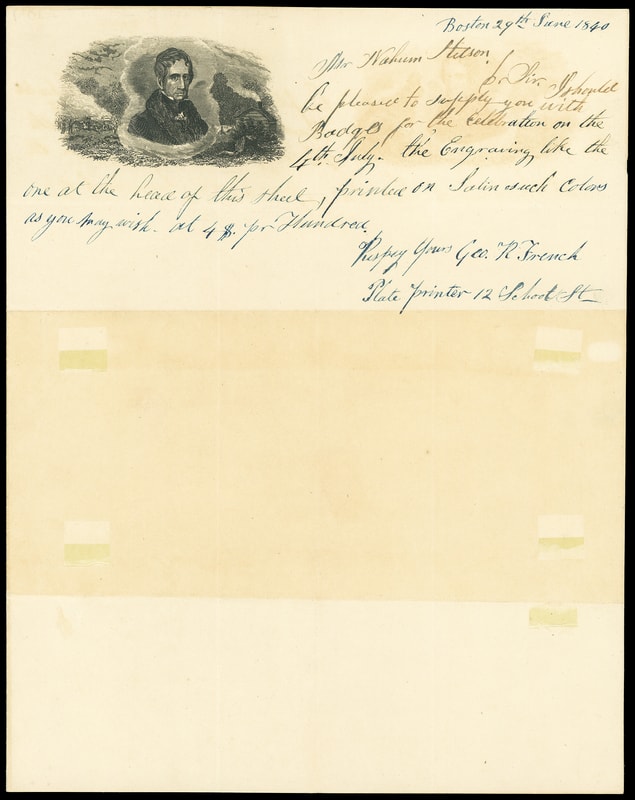 Boston 29th June 1840
Mr Nahum Stetson
Dr Sir. I should
be pleased to supply you with
Badges for the celebration on the
4th July. the Engraving like the
one at the head of this sheet, printed on Satin such colors
as you may wish. at 4 $. pr Hundred.
Respey Yours Geo. R. French
Plate printer 12 School St